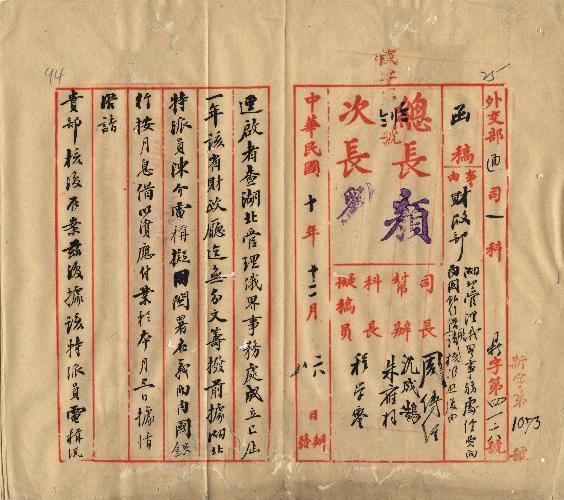 外交部通司一科
函稿
事由
财政部
湖北管理我界事務處經費向
中國銀行
新字第四一二號
新字第1073號
總長顏
次長劉
司長周傳經
幫辦沈成鵠
朱雁村
科長程學鑾
擬稿員
中華民國十年十二月六日
辦發
逕啟者查湖北管理俄界事務處成立已屆
一年該省財政廳迄無分文籌撥前據湖北
特派員陳介電稱擬用關署名義向中國銀
行按月息借以資應付業於本月三日據情
咨請
貴部核復在案茲復據該特派員電稱況
25
94